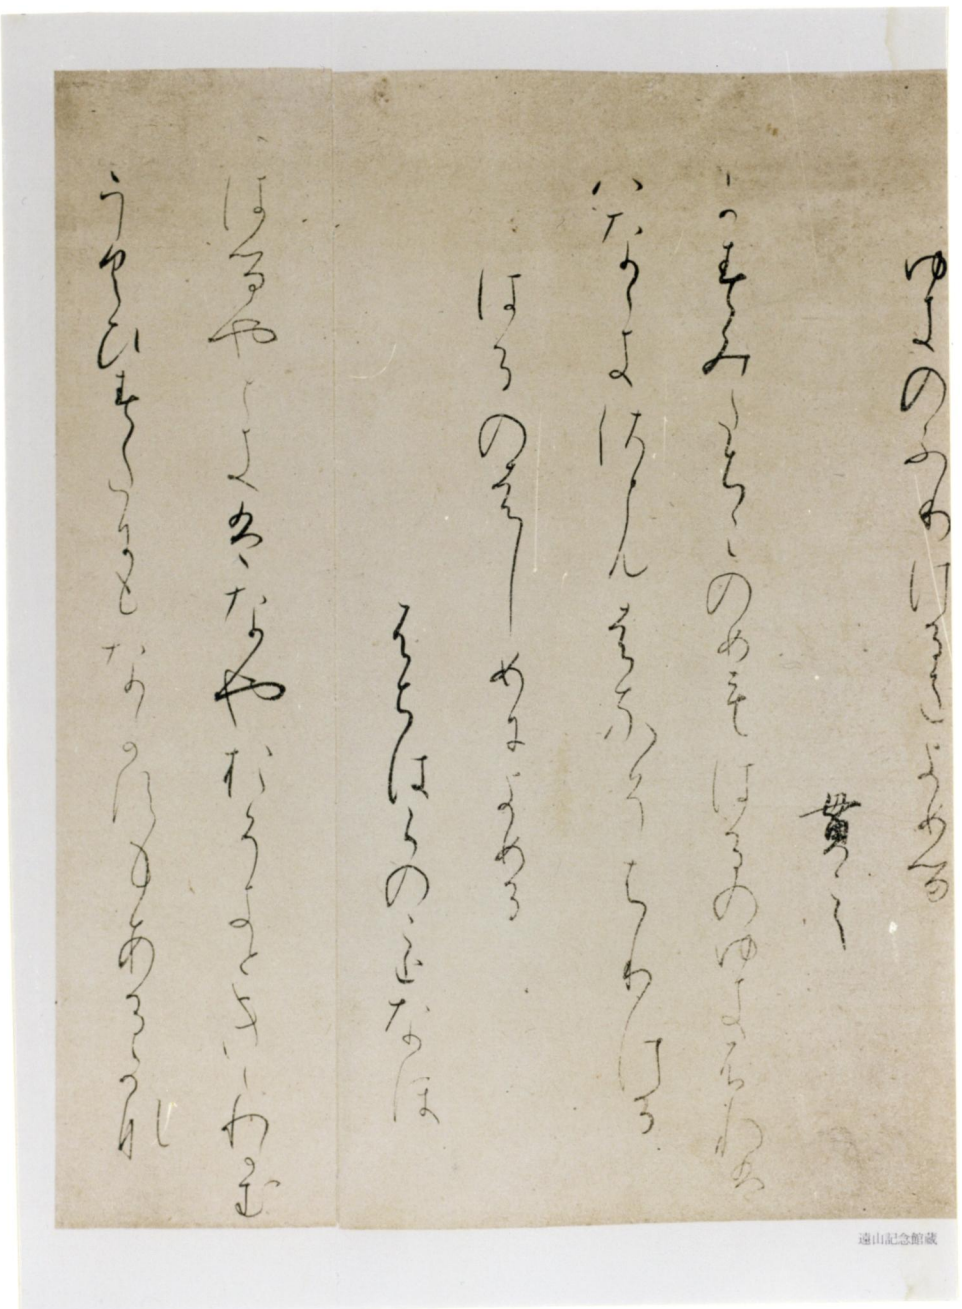 ゆきのふりけるをよめる
貫之
かすみたちこのめもはるのゆきふれは
はなゝきさともはなそちりける
はるのはしめによめる
ふちはらのことなほ
はるやときはなやおそきときゝわかむ
うくひすたにもなかすもあるかな
遠山記念館蔵